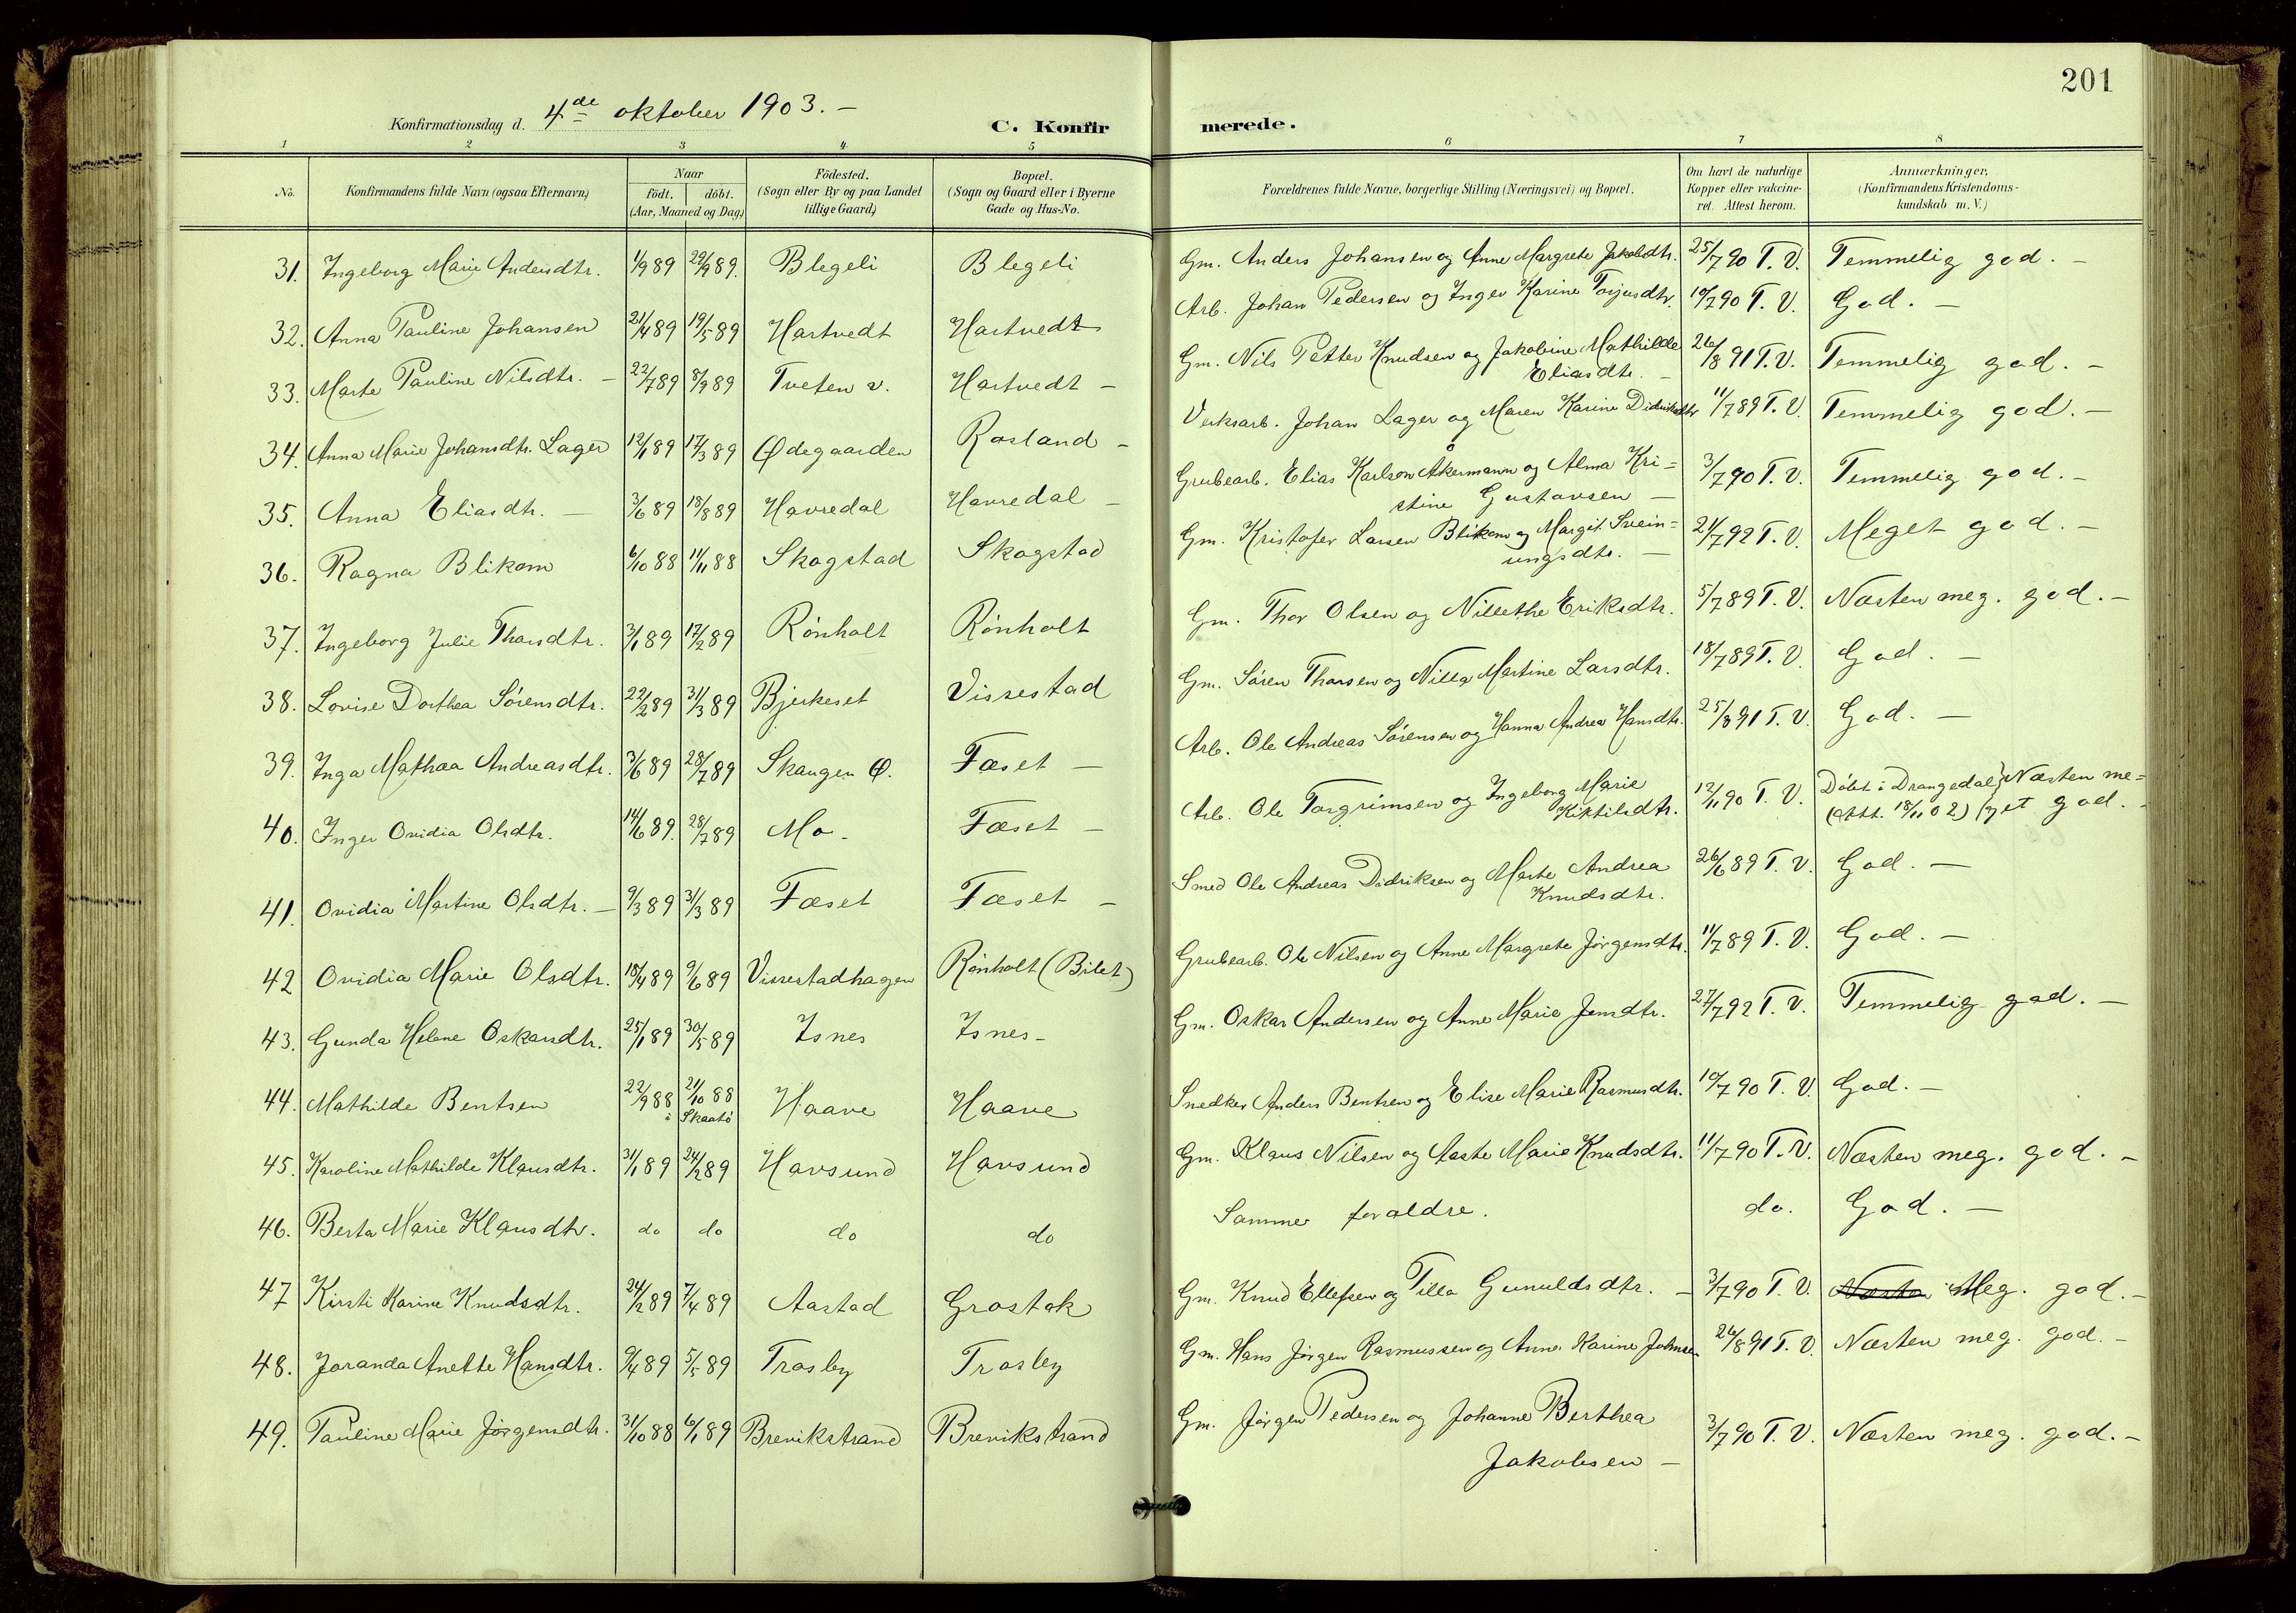 201
Konfirmationsdag d. 4de oktober 1903. –
C. Konfirmerede.
1 2 3 4 5 6 7 8
No. Konfirmandens fulde Navn (ogsaa Efternavn) Naar födt. döbt. (Aar, Maaned og Dag) Födested. (Sogn eller By og paa Landet tillige Gaard) Bopæl. (Sogn og Gaard eller i Byerne Gade og Hus-No. Forældrenes fulde Navne, borgerlige Stilling (Næringsvei) og Bopæl. Om havt de naturlige Kopper eller vakcineret. Attest herom. Anmærkninger, (Konfirmandens Kristendomskundskab m. V.)
31. Ingeborg Marie Andersdtr. 1/9 89 29/9 89. Blegeli Blegeli Gm. Anders Johansen og Anne Margrete Jakobsdtr. 25/7 90 T. V. Temmelig god. –
32. Anna Pauline Johansen 21/4 89 19/5 89 Hartvedt Hartvedt Arb. Johan Pedersen og Inger Karine Torjusdtr. 10/7 90 T. V. God. –
33. Marte Pauline Nilsdtr. – 22/7 89 8/9 89 Tveten v. Hartvedt – Gm. Nils Petter Knudsen og Jakobine Mathilde
Eliasdtr. – 26/8 91 T. V. Temmelig god. –
34. Anna Marie Johansdtr. Lager 12/1 89 17/3 89 Ødegaarden Rosland – Verksarb. Johan Lager og Maren Karine Didriksdtr 11/7 89 T. V. Temmelig god. –
35. Anna Eliasdtr. – 3/6 89 18/8 89 Havredal Havredal – Grubearb. Elias Karlson Åkermann og Alma Kri=
stine Gustavsen – 3/7 90 T. V. Temmelig god. –
36. Ragna Blikom 6/10 88 11/11 88 Skogstad Skogstad Gm. Kristofer Larsen Blikom og Margit Svein=
ungsdtr. – 21/7 92 T. V. Meget god. –
37. Ingeborg Julie Thorsdtr. 3/1 89 17/2 89 Rönholt Rönholt Gm. Thor Olsen og Nillethe Eriksdtr. 5/7 89 T. V. Næsten meg. god. –
38. Lovise Dorthea Sörensdtr. 22/2 89 31/3 89 Bjerkeset Vissestad Gm. Sören Thorsen og Nilla Martine Larsdtr. 18/7 89 T. V. God. –
39. Inga Mathea Andreasdtr. 3/6 89 28/7 89 Skaugen Ø. Fæset – Arb. Ole Andreas Sörensen og Hanna Andrea Hansdtr. 25/8 91 T. V. God. –
40. Inger Ovidia Olsdtr. 14/6 89. 28/7 89 Mo – Fæset – Arb. Ole Torgrimsen og Ingeborg Marie
Kittilsdtr. 12/11 90 T. V. Döbt i Drangedal } Næsten me=
(Att. 18/11 02) get god. –
41. Ovidia Martine Olsdtr. – 9/3 89 31/3 89 Fæset Fæset – Smed Ole Andreas Didriksen og Marte Andrea
Knudsdtr. 26/6 89 T. V. God. –
42 Ovidia Marie Olsdtr. 18/4 89 9/6 89 Vissestadhagen Rönholt (Bilet) Grubearb. Ole Nilsen og Anne Margrete Jörgensdtr. 11/7 89 T. V. God. –
43. Gunda Helene Oskarsdtr. 25/1 89 30/5 89 Isnes Isnes – Gm. Oskar Andersen og Anne Marie Jensdtr. 27/7 92 T. V. Temmelig god. –
44. Mathilde Bentsen 22/9 88 21/10 88 i Skaatö Haave Haave Snedker Anders Bentsen og Elise Marie Rasmusdtr. 10/7 90 T. V. God. –
45. Karoline Mathilde Klausdtr. 31/1 89 24/2 89 Havsund Havsund Gm. Klaus Nilsen og Aaste Marie Knudsdtr. 11/7 90 T. V. Næsten meg. god. –
46. Berta Marie Klausdtr. do do do do Samme foraldre. do. God. –
47 Kirsti Karine Knudsdtr. 24/2 89 7/4 89 Aastad Grostok Gm. Knud Ellefsen og Tilla Gunuldsdtr. – 3/7 90 T. V. Næsten Meg. god. –
48. Joranda Anette Hansdtr. 9/4 89 5/5 89 Trosby Trosby Gm. Hans Jörgen Rasmussen og Anne Karine Johnsen 26/8 91 T. V. Næsten meg. god. –
49. Pauline Marie Jörgensdtr. 31/10 88 6/1 89 Brevikstrand Brevikstrand Gm. Jörgen Pedersen og Johanne Berthea
Jakobsen – 3/7 90 T. V. Næsten meg. god. –